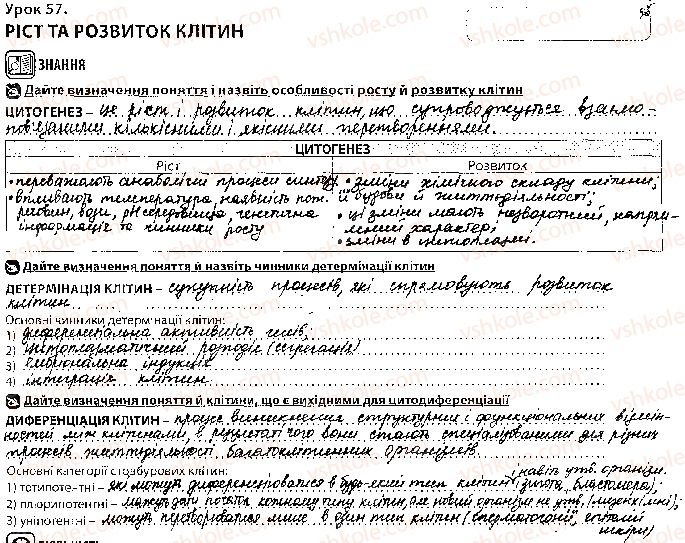 Урок 57.
РІСТ ТА РОЗВИТОК КЛІТИН
ЗНАННЯ
Дайте визначення поняття і назвіть особливості росту й розвитку клітин
ЦИТОГЕНЕЗ – це ріст і розвиток клітин, що супроводжується взаємо-
пов'язаними кількісними і якісними перетвореннями.
ЦИТОГЕНЕЗ
Ріст
Розвиток
• переважають анаболічні процеси синтезу
• впливають температура, наявність пож.
речовин, води, pH середовища, генетична
інформація та чинники росту
• зміни хімічного складу клітини,
її будови й життєдіяльності;
• ці зміни мають незворотний, напрям-
лений характер;
• зміни в цитоплазмі.
Дайте визначення поняття й назвіть чинники детермінації клітин
ДЕТЕРМІНАЦІЯ КЛІТИН – сукупність процесів, які спрямовують розвиток
клітин
Основні чинники детермінації клітин:
1) диференціальна активність генів;
2) цитоплазматичний розподіл (сегрегація)
3) ембріональна індукція
4) інтеграція клітин
Дайте визначення поняття й клітини, що є вихідними для цитодиференціації
ДИФЕРЕНЦІАЦІЯ КЛІТИН – процес виникнення структурних і функціональних відмін-
ностей між клітинами, в результаті чого вони стають спеціалізованими для різних
процесів життєдіяльності багатоклітинних організмів
Основні категорії стовбурових клітин: і навіть утв. організм.
1) тотипотентні – які можуть диференціюватися в будь-який тип клітин (зигота, бластомера);
2) плюрипотентні – можуть дати початок кожному типу клітин, але новий організм не утв. (мезенхімні);
3) уніпотентні – можуть перетворюватися лише в один тип клітин (сперматогонії, епітелій
шкіри)